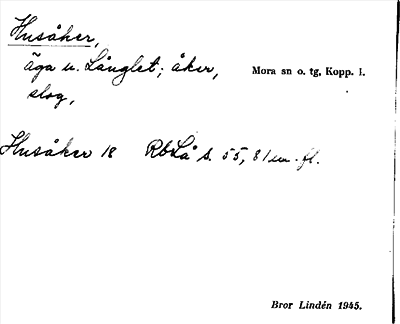 Husåker,
äga u. Långlet; åker,
Mora sn o. tg, Kopp. l.
slog,
Husåker 18 RbLå s. 55, 81 m. fl.
Bror Lindén 1945.